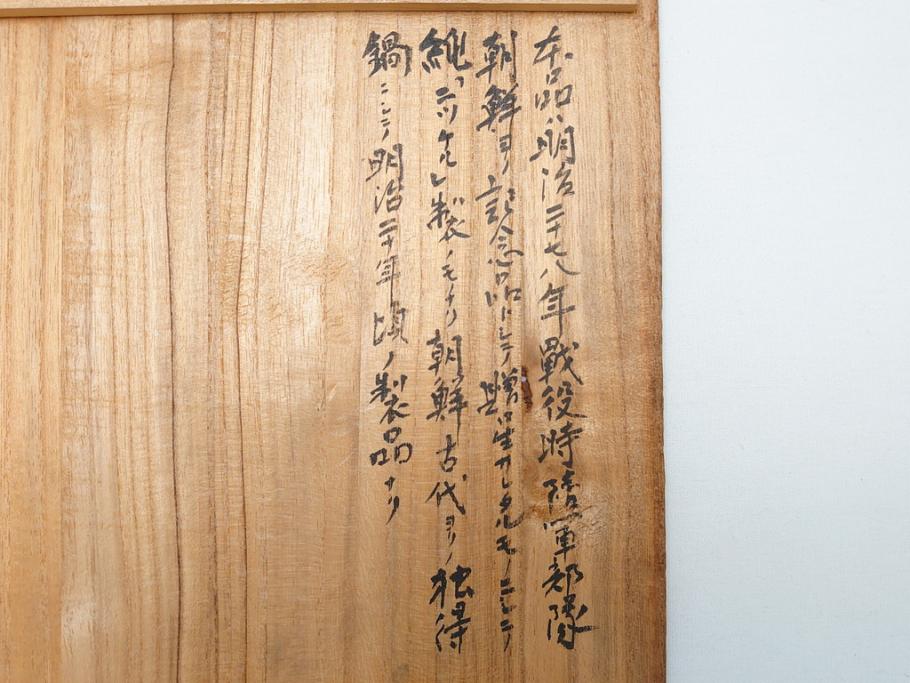 本品ハ明治二十七八年戰役時陸軍部隊
朝鮮ヨリ記念品トシテ贈呈サレタルモノニシテ
純「ニッケル」製ノモノナリ朝鮮古代ヨリノ独得
鍋ニシテ明治二十年頃ノ製品ナリ